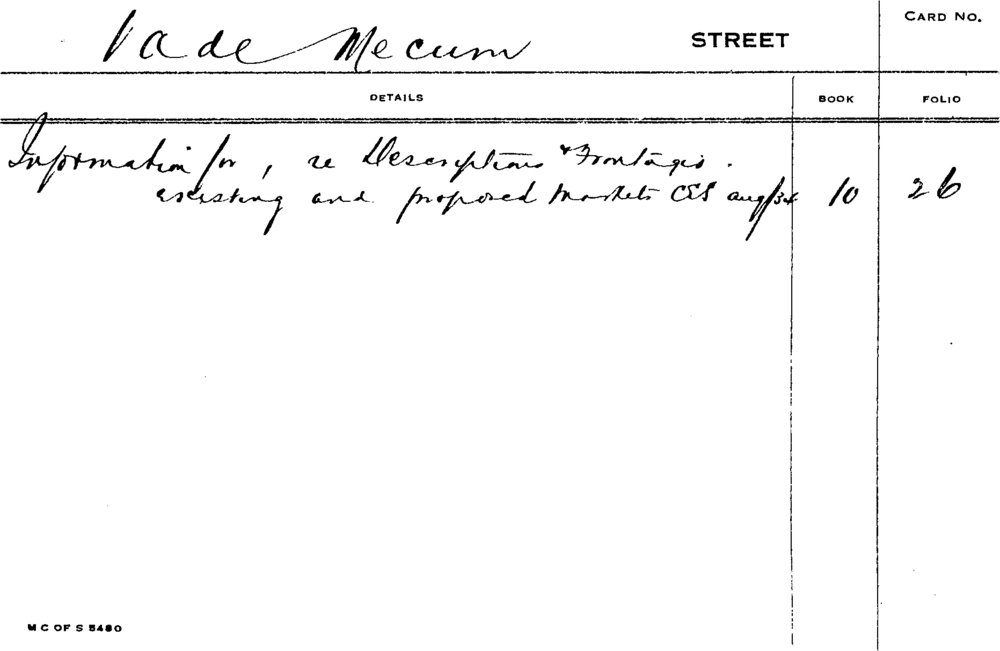 Vade Mecum STREET CARD NO.
DETAILS BOOK FOLIO
Information for, re Descriptions & Frontages.
existing and proposed Markets CES Aug/34 10 26
M C OF S 5480